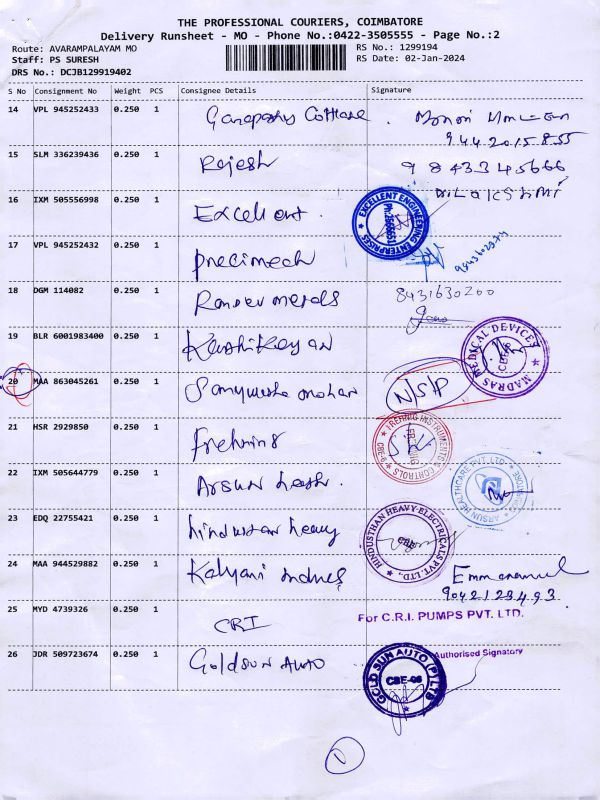 THE PROFESSIONAL COURIERS, COIMBATORE
Delivery Runsheet - MO - Phone No.:0422-3505555 - Page No.:2
Route: AVARAMPALAYAM MO
RS No.: 1299194
Staff: PS SURESH
RS Date: 02-Jan-2024
DRS No.: DCJB129919402
S No Consignment No Weight PCS Consignee Details Signature
14 VPL 945252433 0.250 1
9442015855
15 SLM 336239436 0.250 1 Rajesh 9843345666
16 IXM 505556998 0.250 1 Excellent.
EXCELLENT ENGINEERING ENTERPRISES
17 VPL 945252432 0.250 1 Precimech
18 DGM 114082 0.250 1 metals 8431630200
19 BLR 6001983400 0.250 1 Karthikeyan
MADRAS MEDICAL DEVICES
20 MAA 863045261 0.250 1 mohan N/S/P
21 HSR 2929850 0.250 1 Frehning
FREHNIG INSTRUMENTS & CONTROLS
22 IXM 505644779 0.250 1 Arsun heath.
ARSUN HEALTHCARE PVT. LTD.
23 EDQ 22755421 0.250 1 hindustan heavy
HINDUSTHAN HEAVY ELECTRICALS PVT. LTD.,
24 MAA 944529882 0.250 1 Kalyani Emmanuel
9042123493
25 MYD 4739326 0.250 1 CRI
For C.R.I. PUMPS PVT. LTD.
Authorised Signatory
26 JDR 509723674 0.250 1 Goldsun Auto
GOLD SUN AUTO (P) LTD
CBE-06